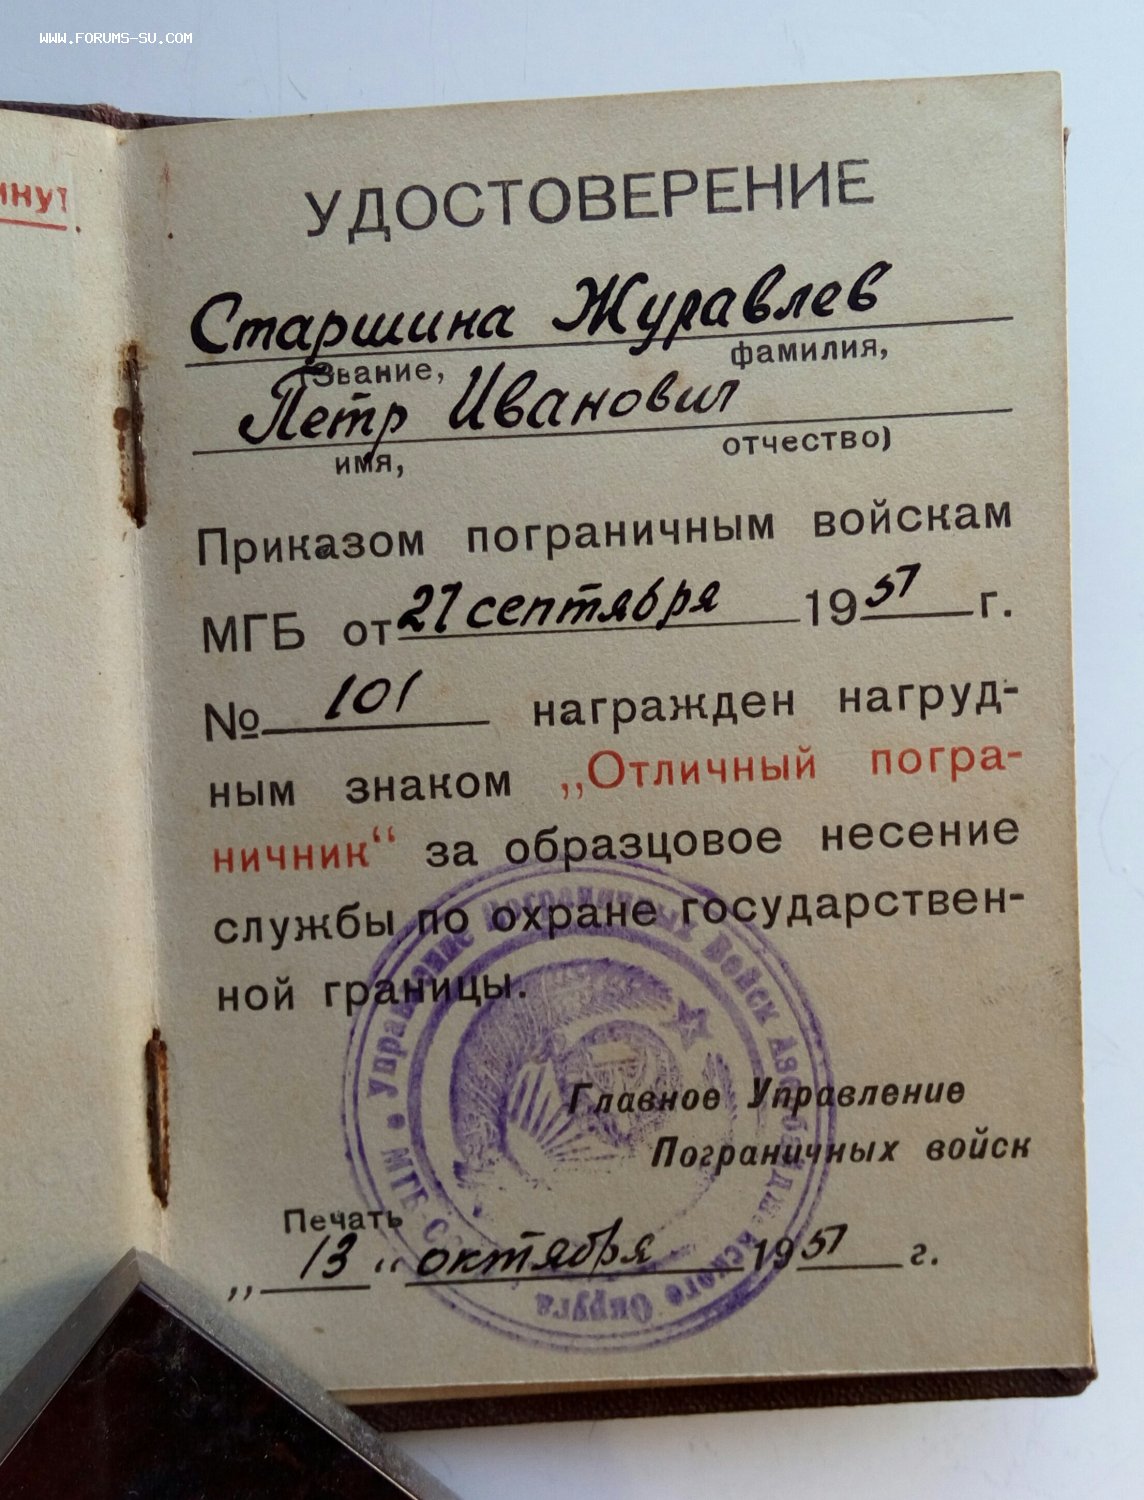 WWW.FORUMS-SU.COM
УДОСТОВЕРЕНИЕ
Старшина Журавлев
(Звание, фамилия,
Петр Иванович
имя, отчество)
Приказом пограничным войскам
МГБ от 27 сентября 1951 г.
№ 101 награжден нагруд-
ным знаком „Отличный погра-
ничник“ за образцовое несение
службы по охране государствен-
ной границы.
Главное Управление
Пограничных войск
Печать
„ 13 “ октября 1951 г.
Управление Пограничных Войск Азербайджанского Округа • МГБ